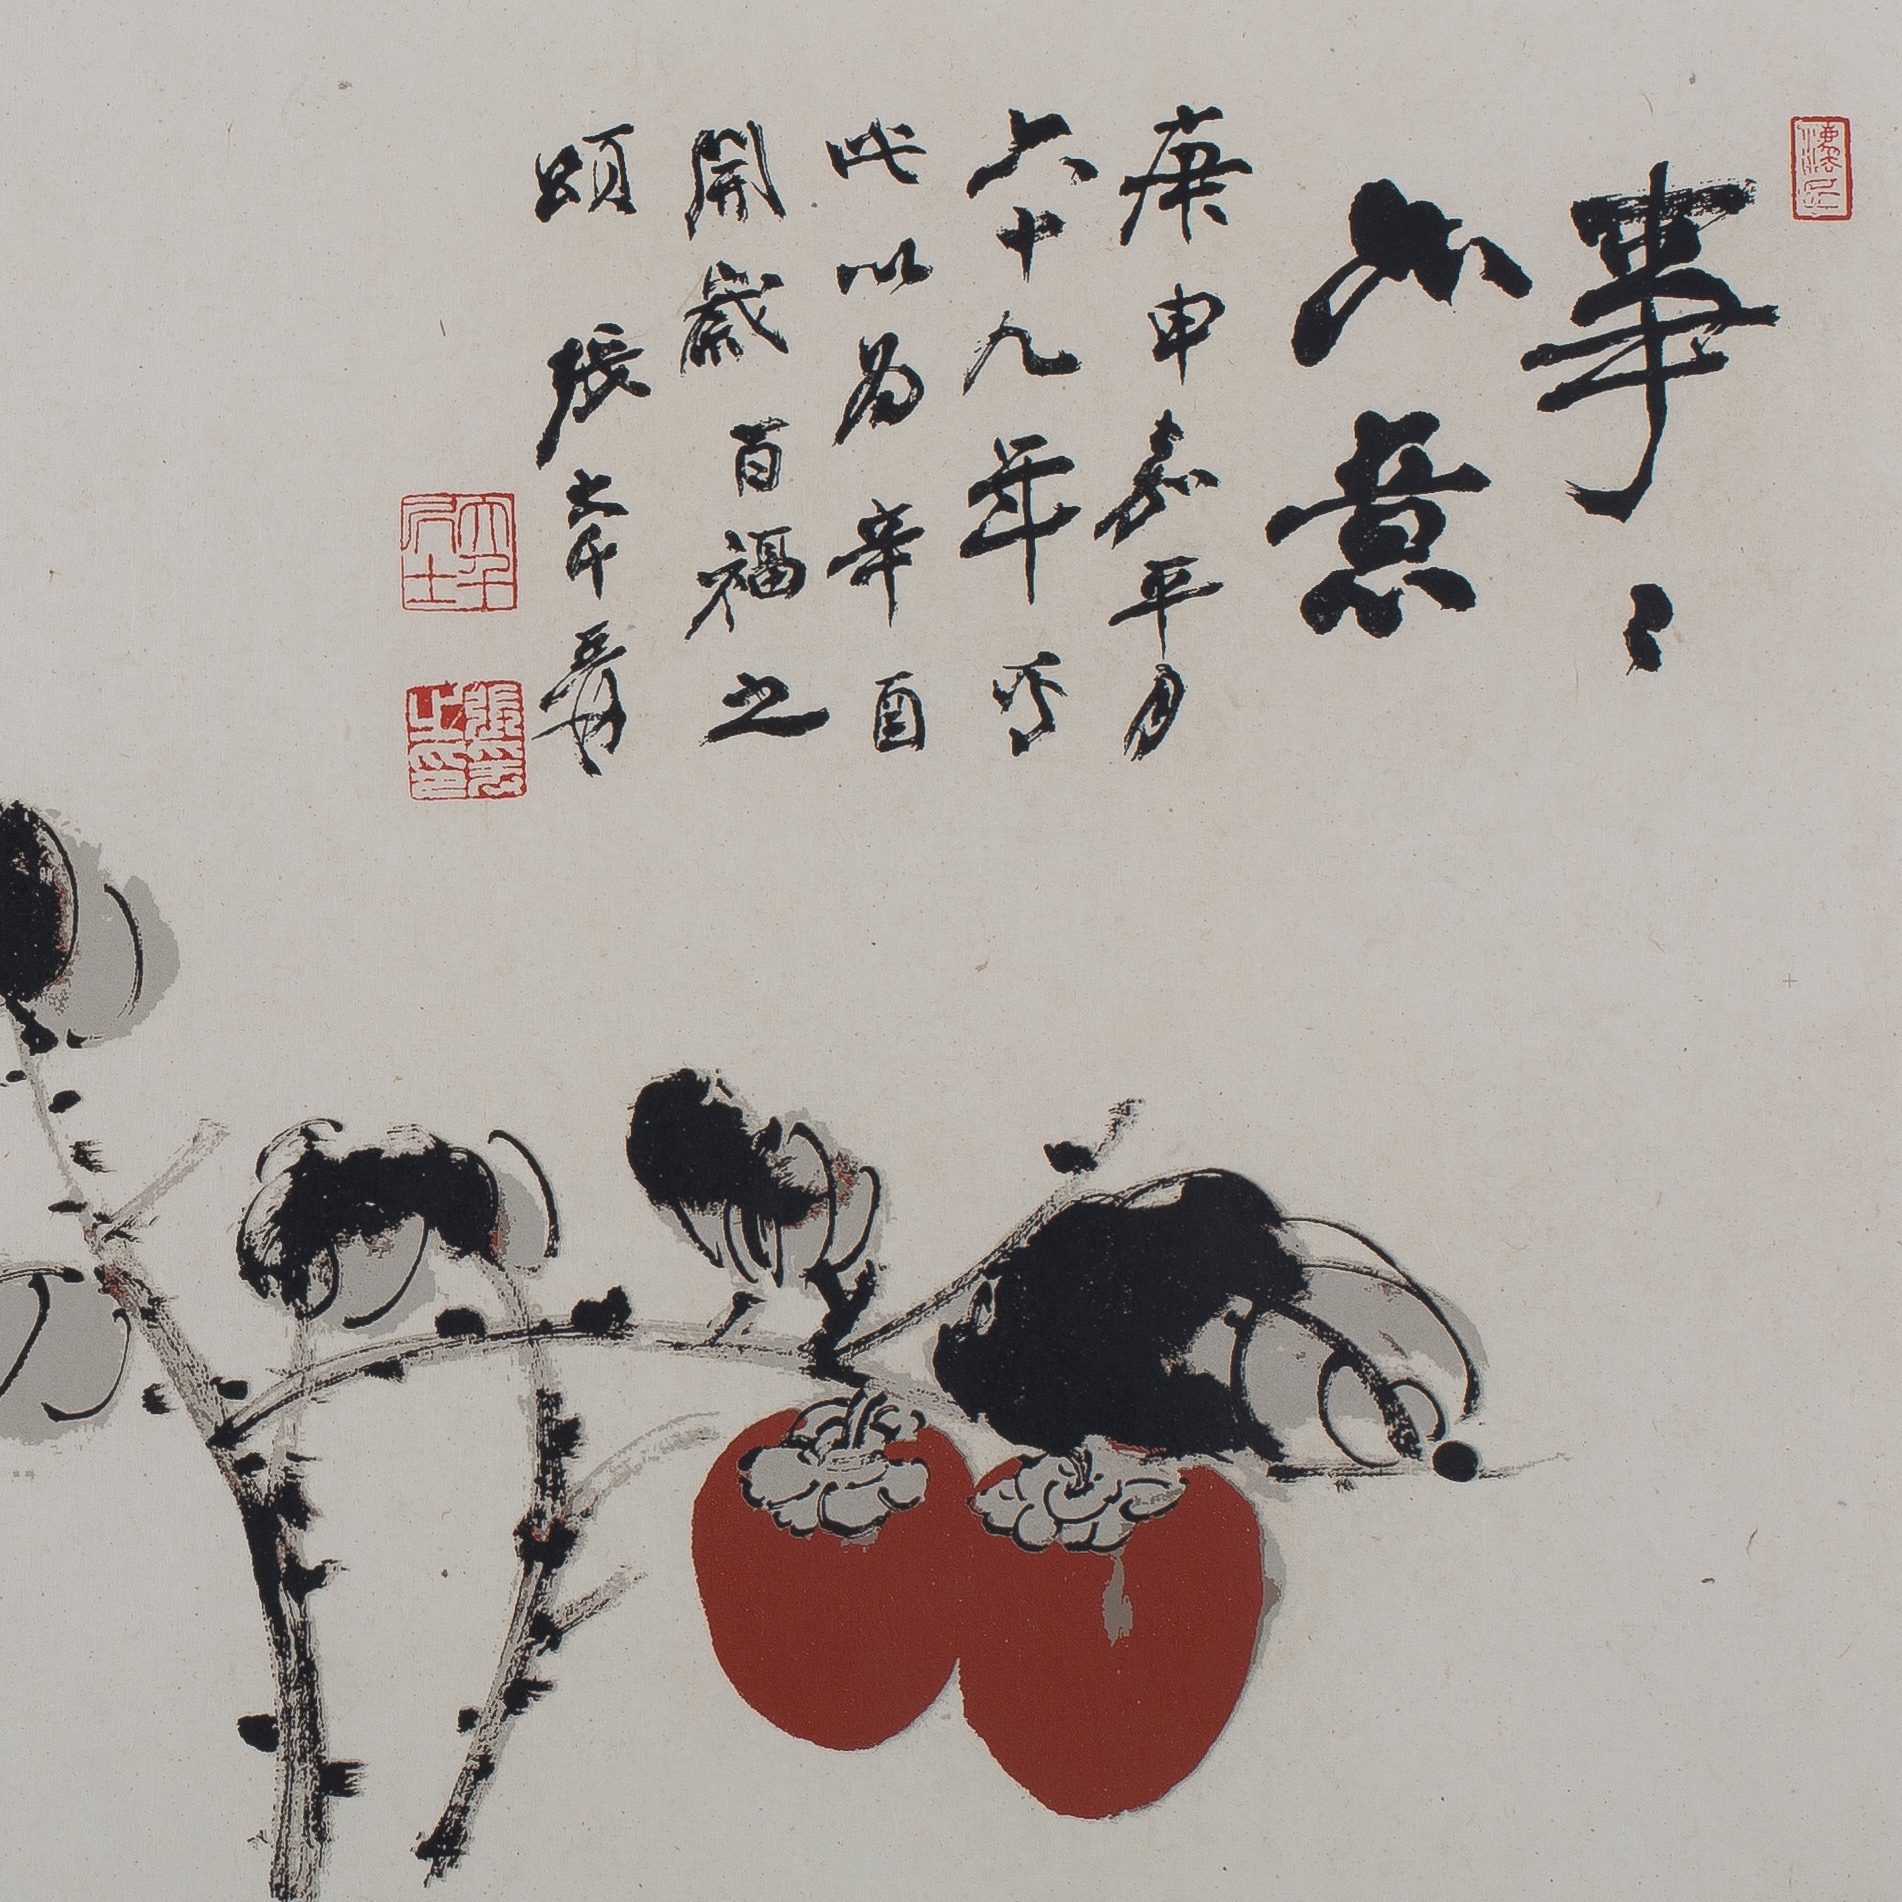 事〻
如意
庚申嘉平月
六十九年
此以為辛酉
開歲百福之
頌 張大千爰
大千居士
張爰之印